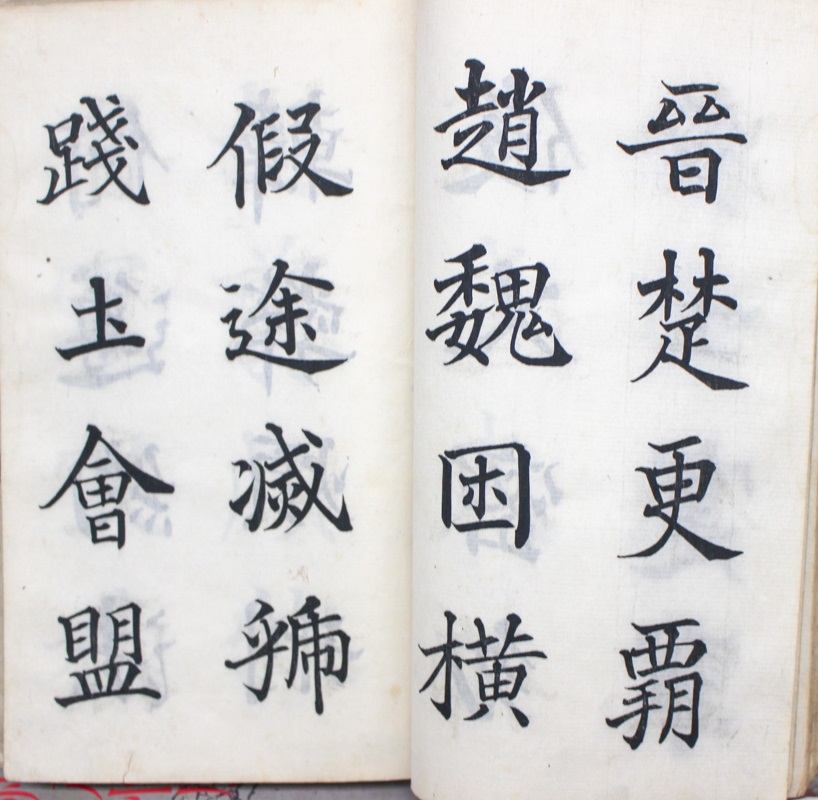 晉楚更覇
趙魏困橫
假途滅虢
踐土會盟